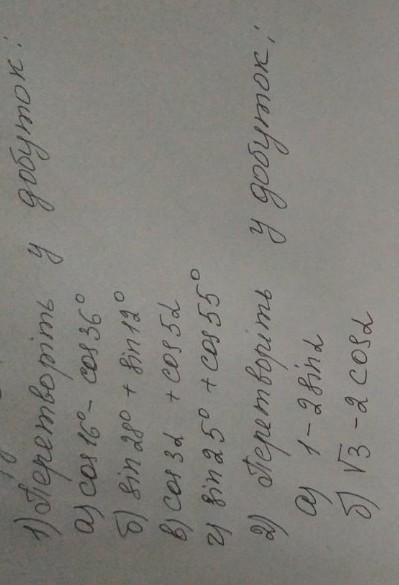 1) Перетворіть у добуток:
а) cos16° - cos36°
б) sin28° + sin12°
в) cos3α + cos5α
г) sin25° + cos55°
2) Перетворіть у добуток:
а) 1 - 2sinα
б) √3 - 2cosα